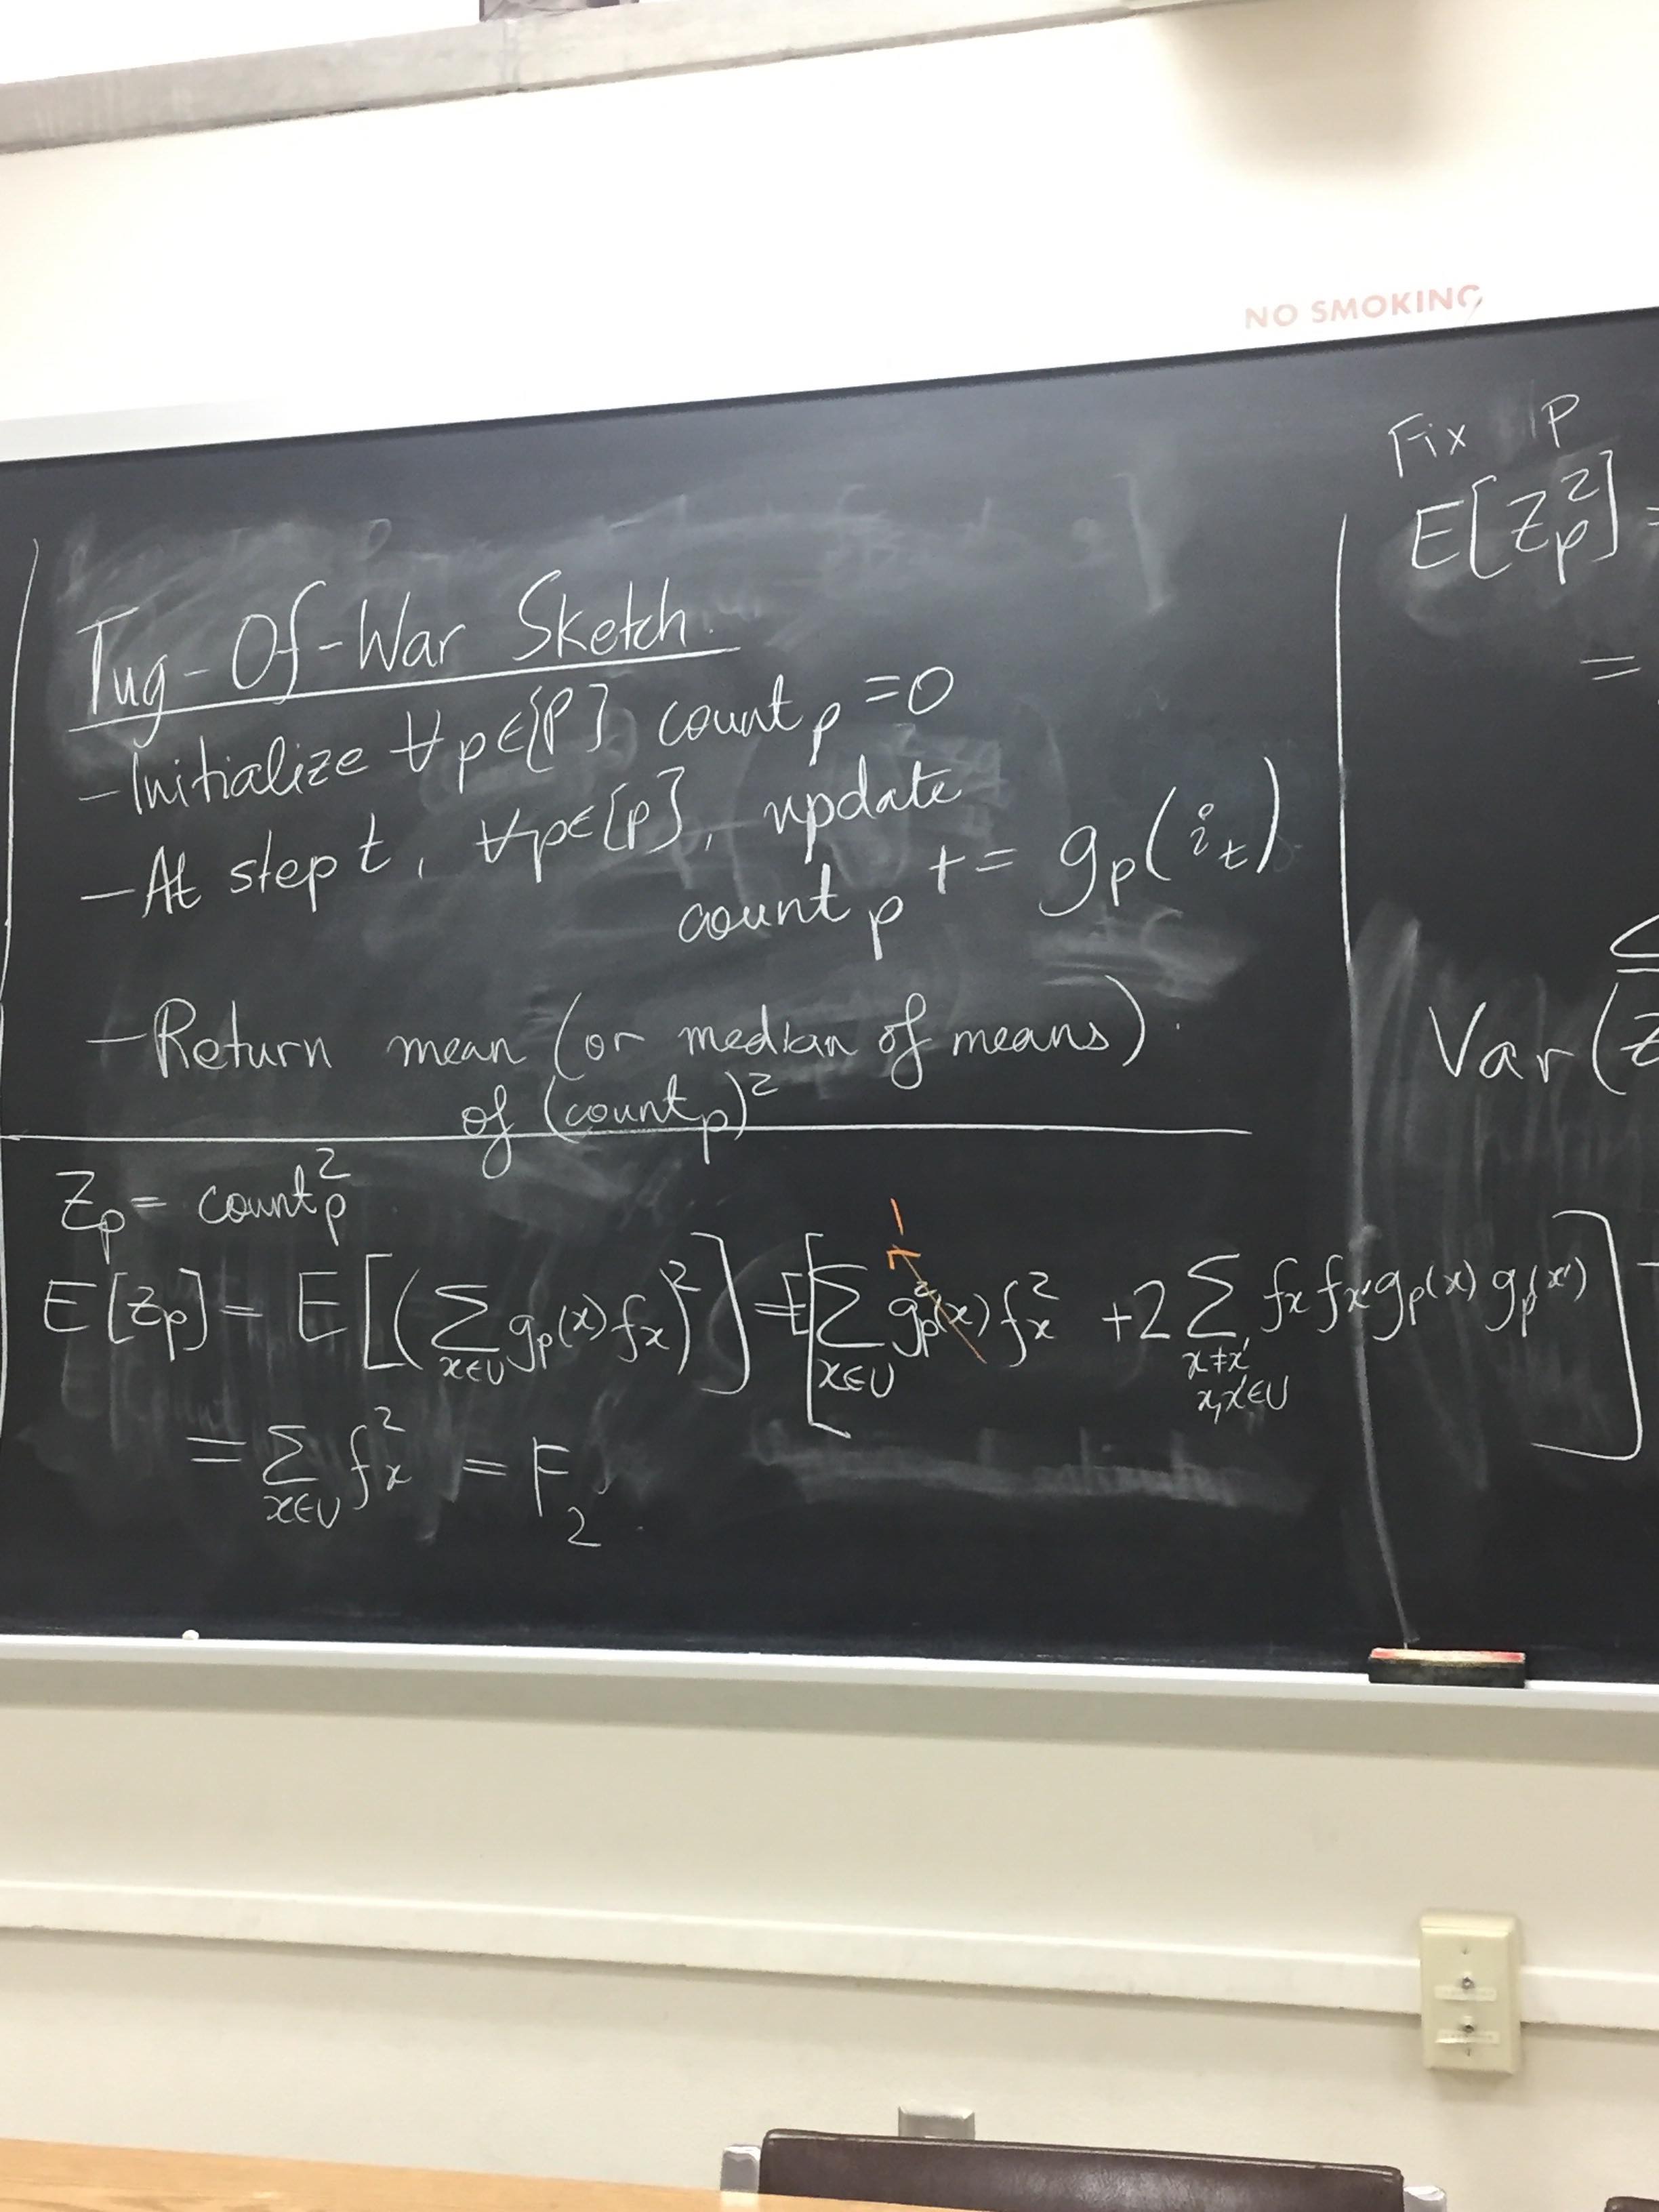 NO SMOKING
Tug-Of-War Sketch.
- Initialize ∀p∈[P] count_p = 0
- At step t, ∀p∈[p], update
count_p += g_p(i_t)
- Return mean (or median of means).
of (count_p)²
Z_p = count_p²
1
E[Z_p] = E[(∑_{x∈U} g_p(x) f_x)²] = E[∑_{x∈U} g_p²(x) f_x² + 2 ∑_{x≠x', x,x'∈U} f_x f_x' g_p(x) g_p(x')]
= ∑_{x∈U} f_x² = F_2.
Fix p
E[Z_p²] =
=
Var(Z